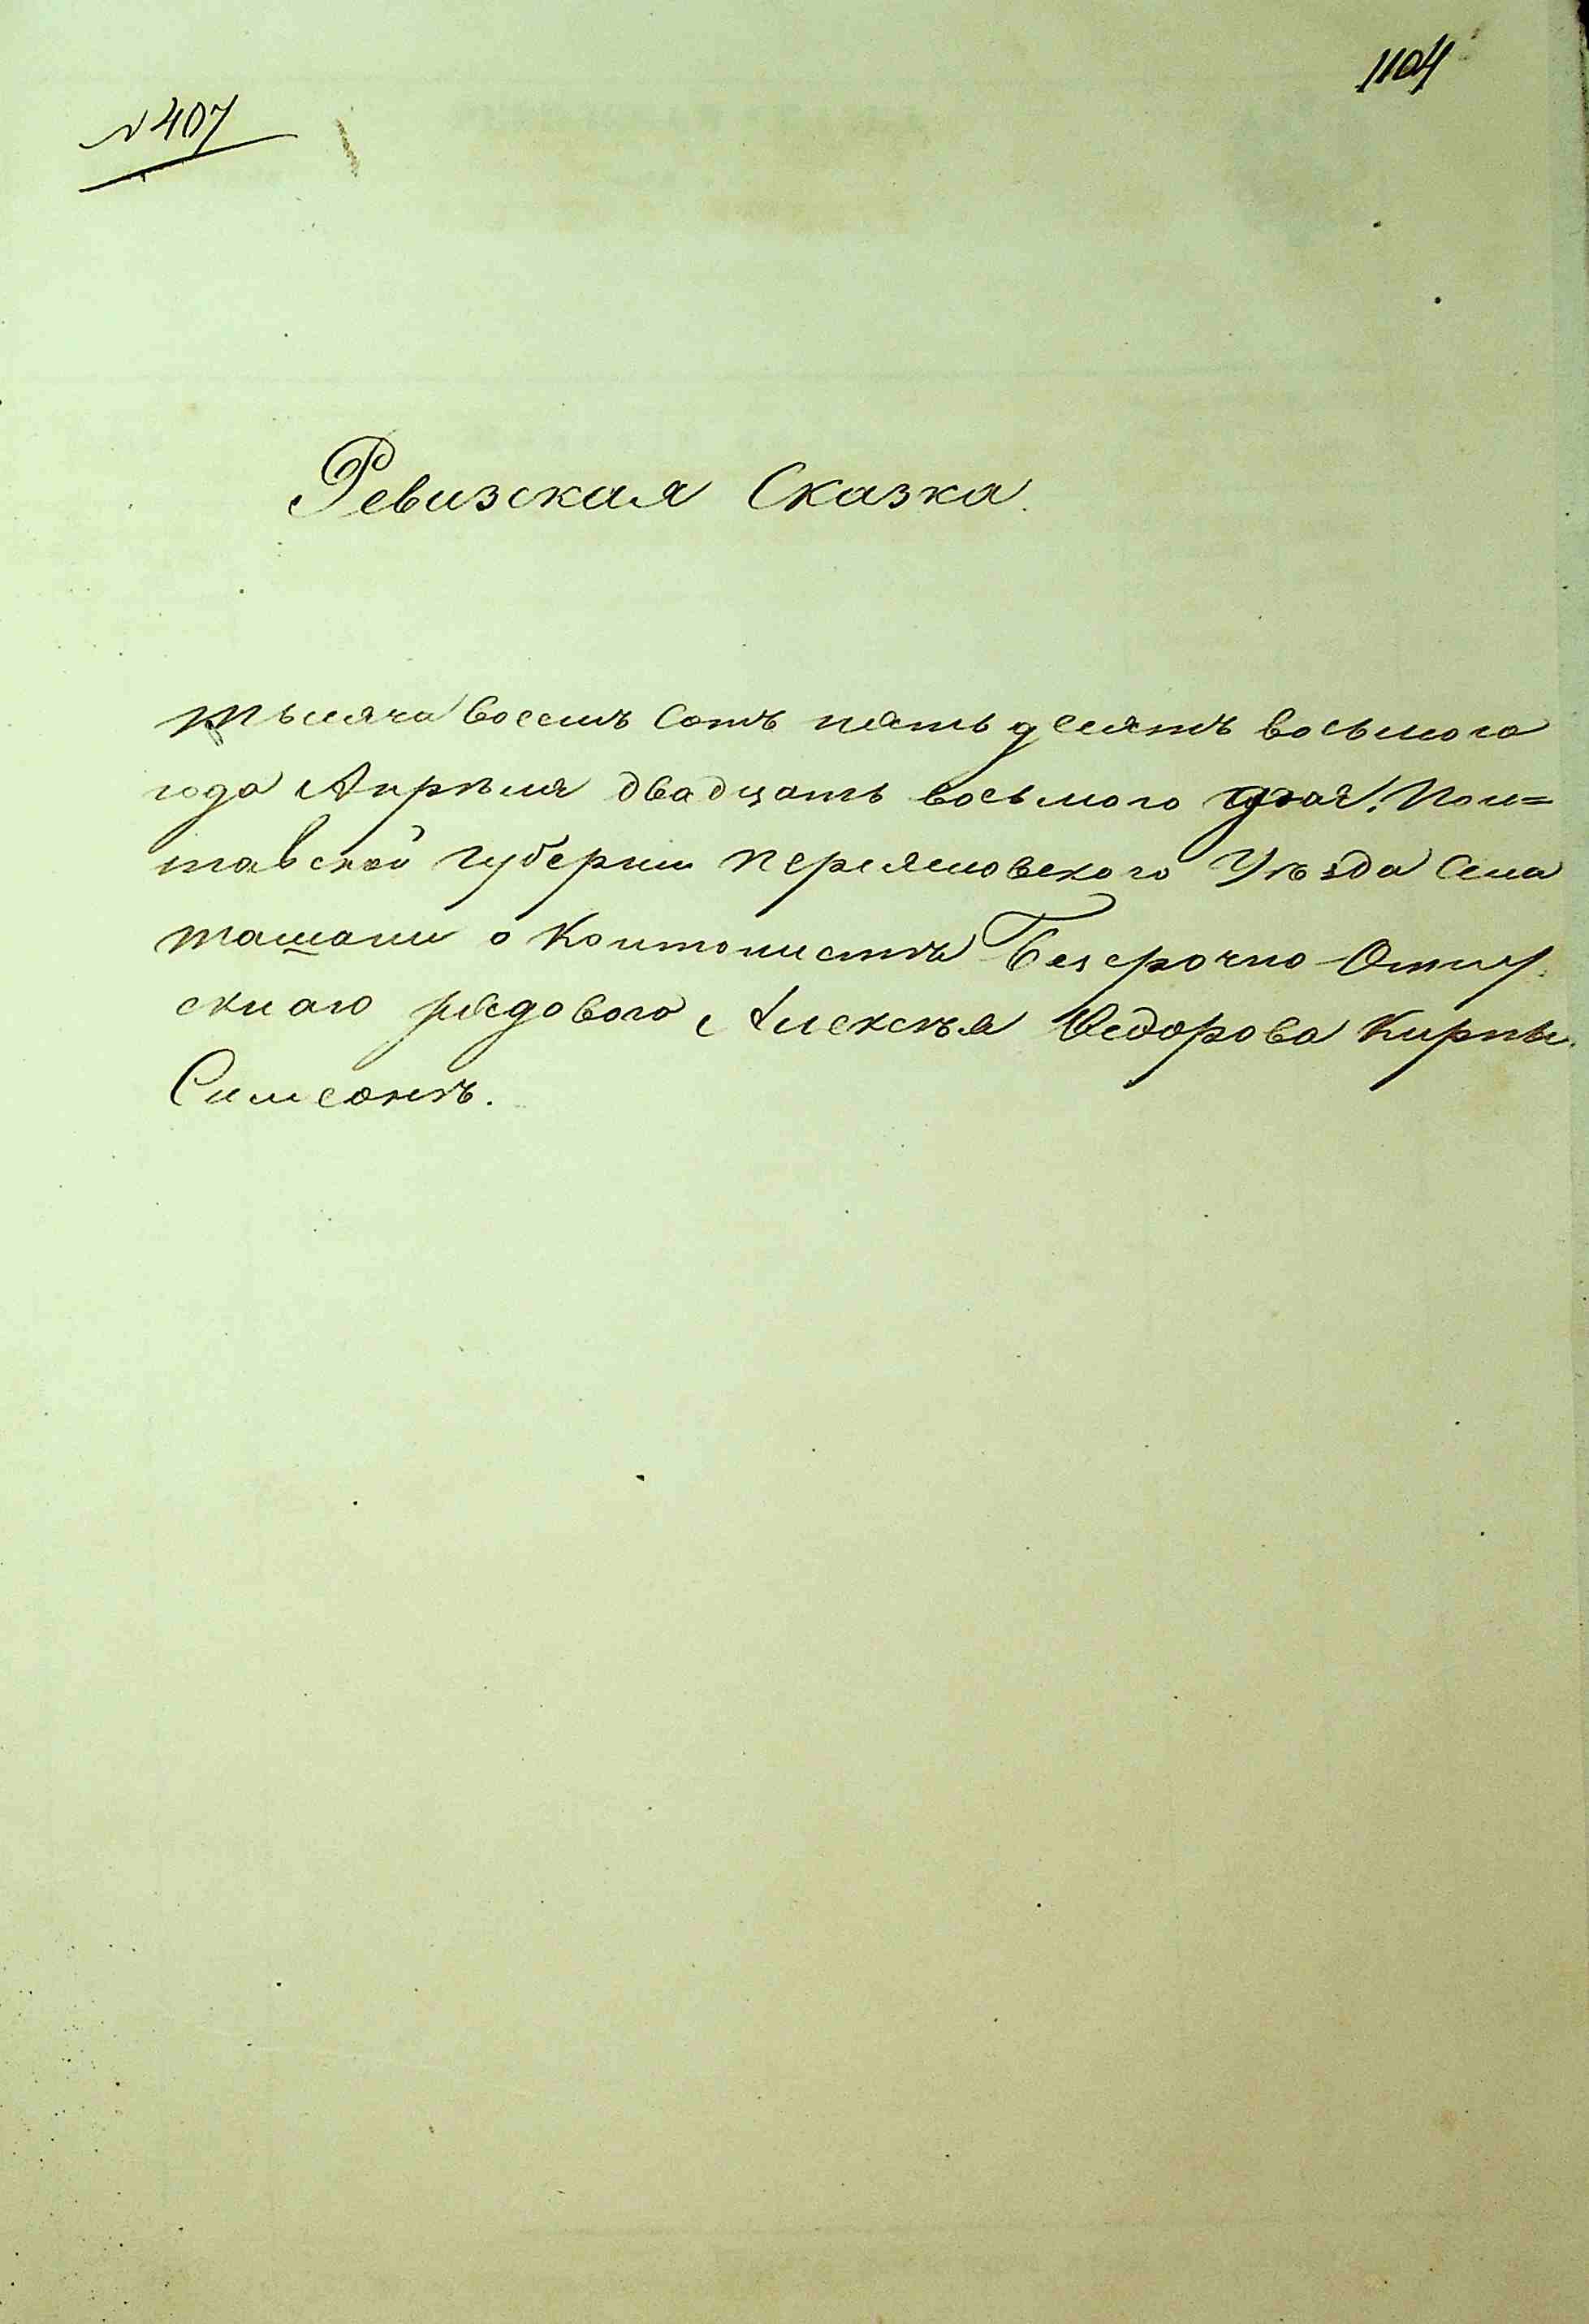 1104
№ 407
Ревизская Сказка.
тысяча восемъ сотъ пять десятъ восьмого
года Апрѣля двадцать восьмого дня! Пол=
тавской губернии Переяславского Уѣзда Села
Ташани о Кантонистѣ Безсрочно Отпу
скнаго рядового Алексѣя Ѳедорова Кирпы
Симеонъ.